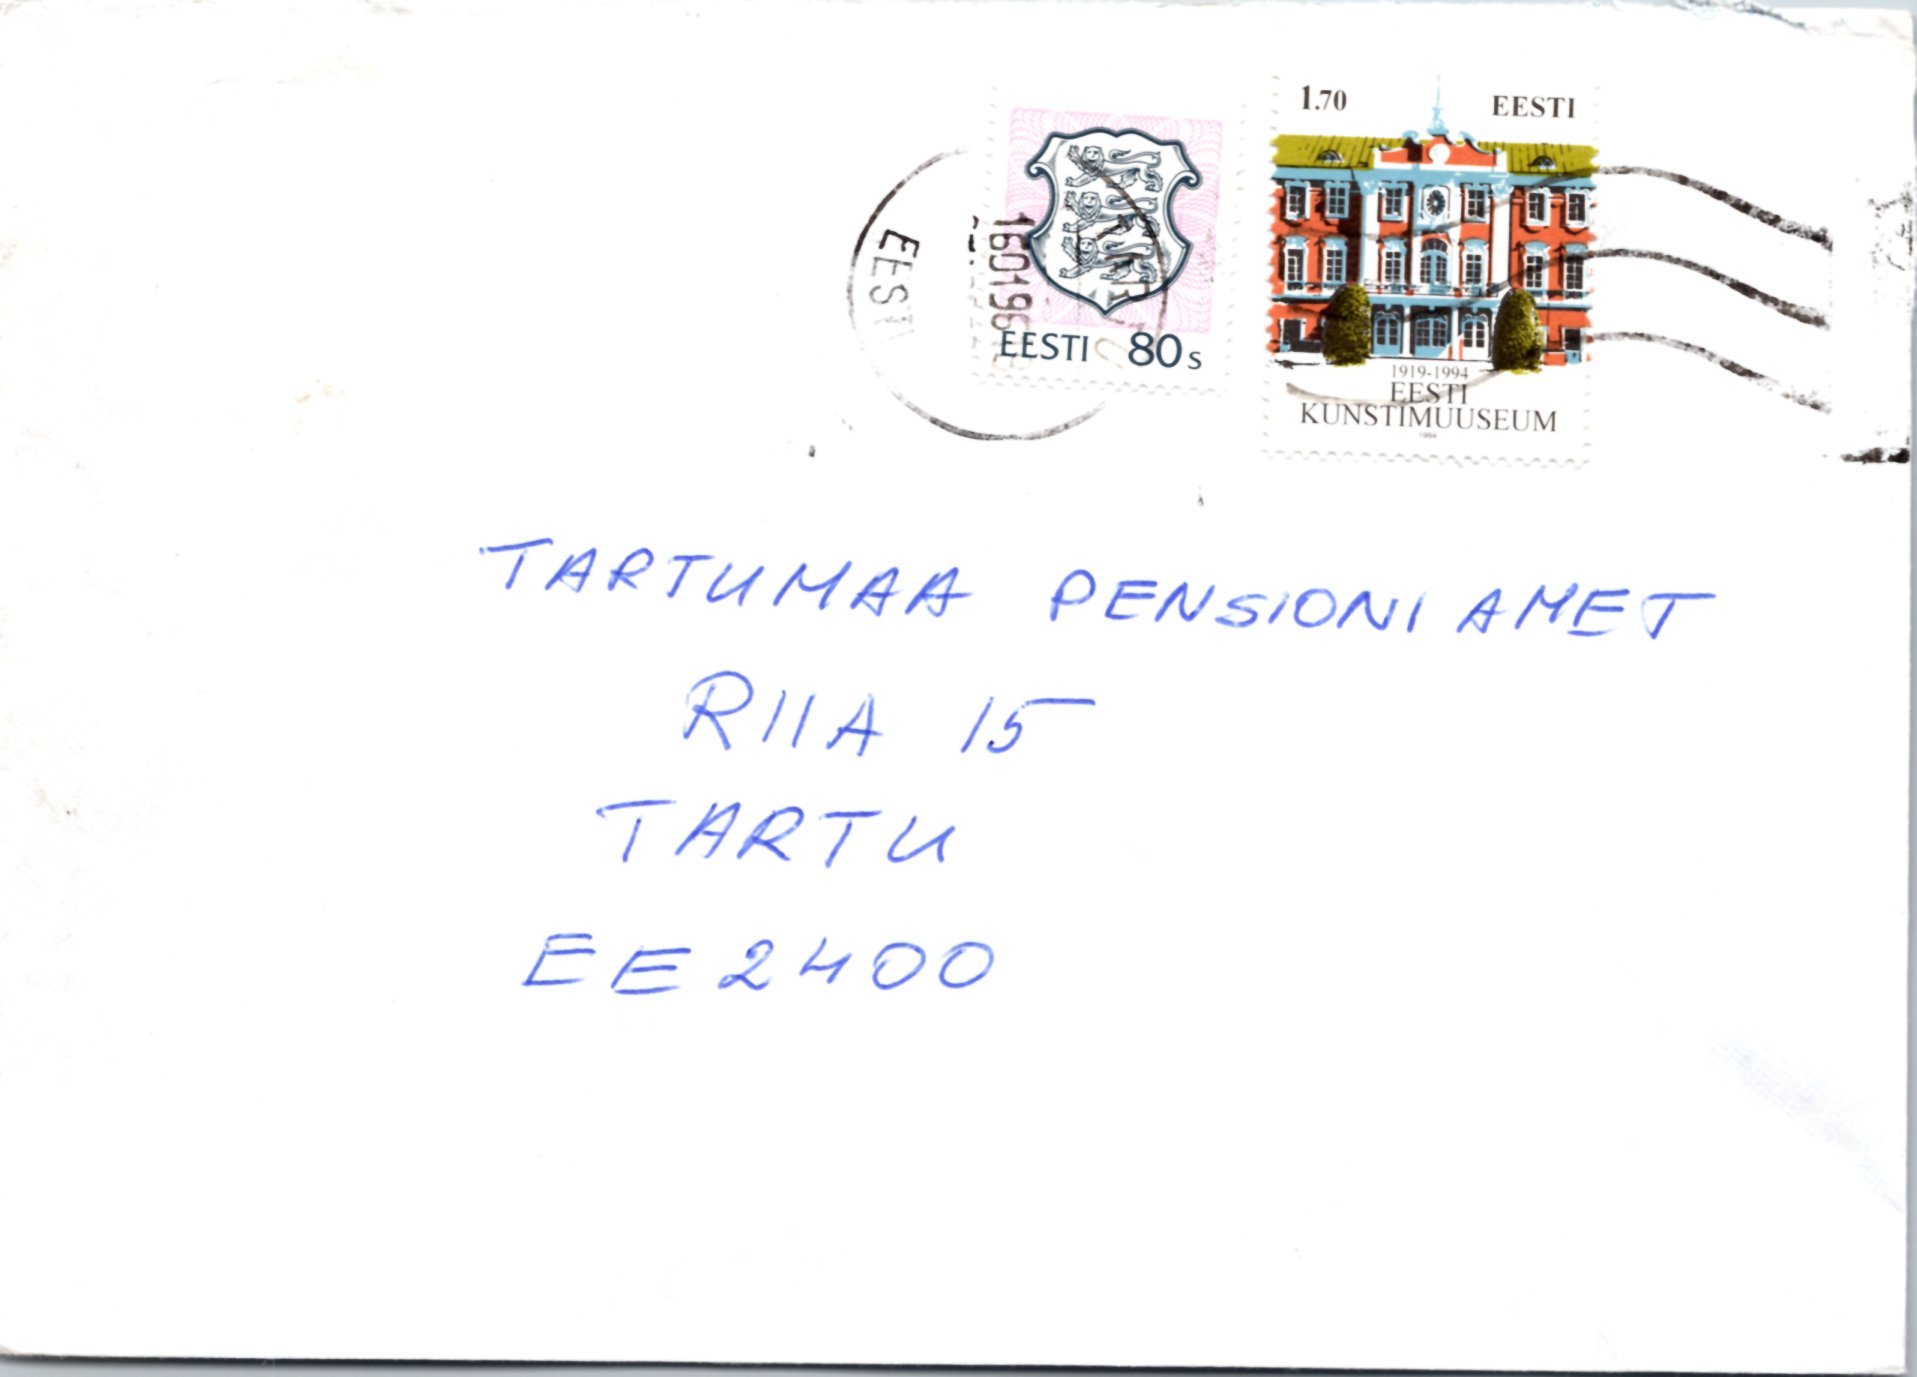 1.70 EESTI
EESTI 80s
1919-1994
EESTI
KUNSTIMUUSEUM
1994
EESTI
TARTUMAA PENSIONIAMET
RIIA 15
TARTU
EE2400